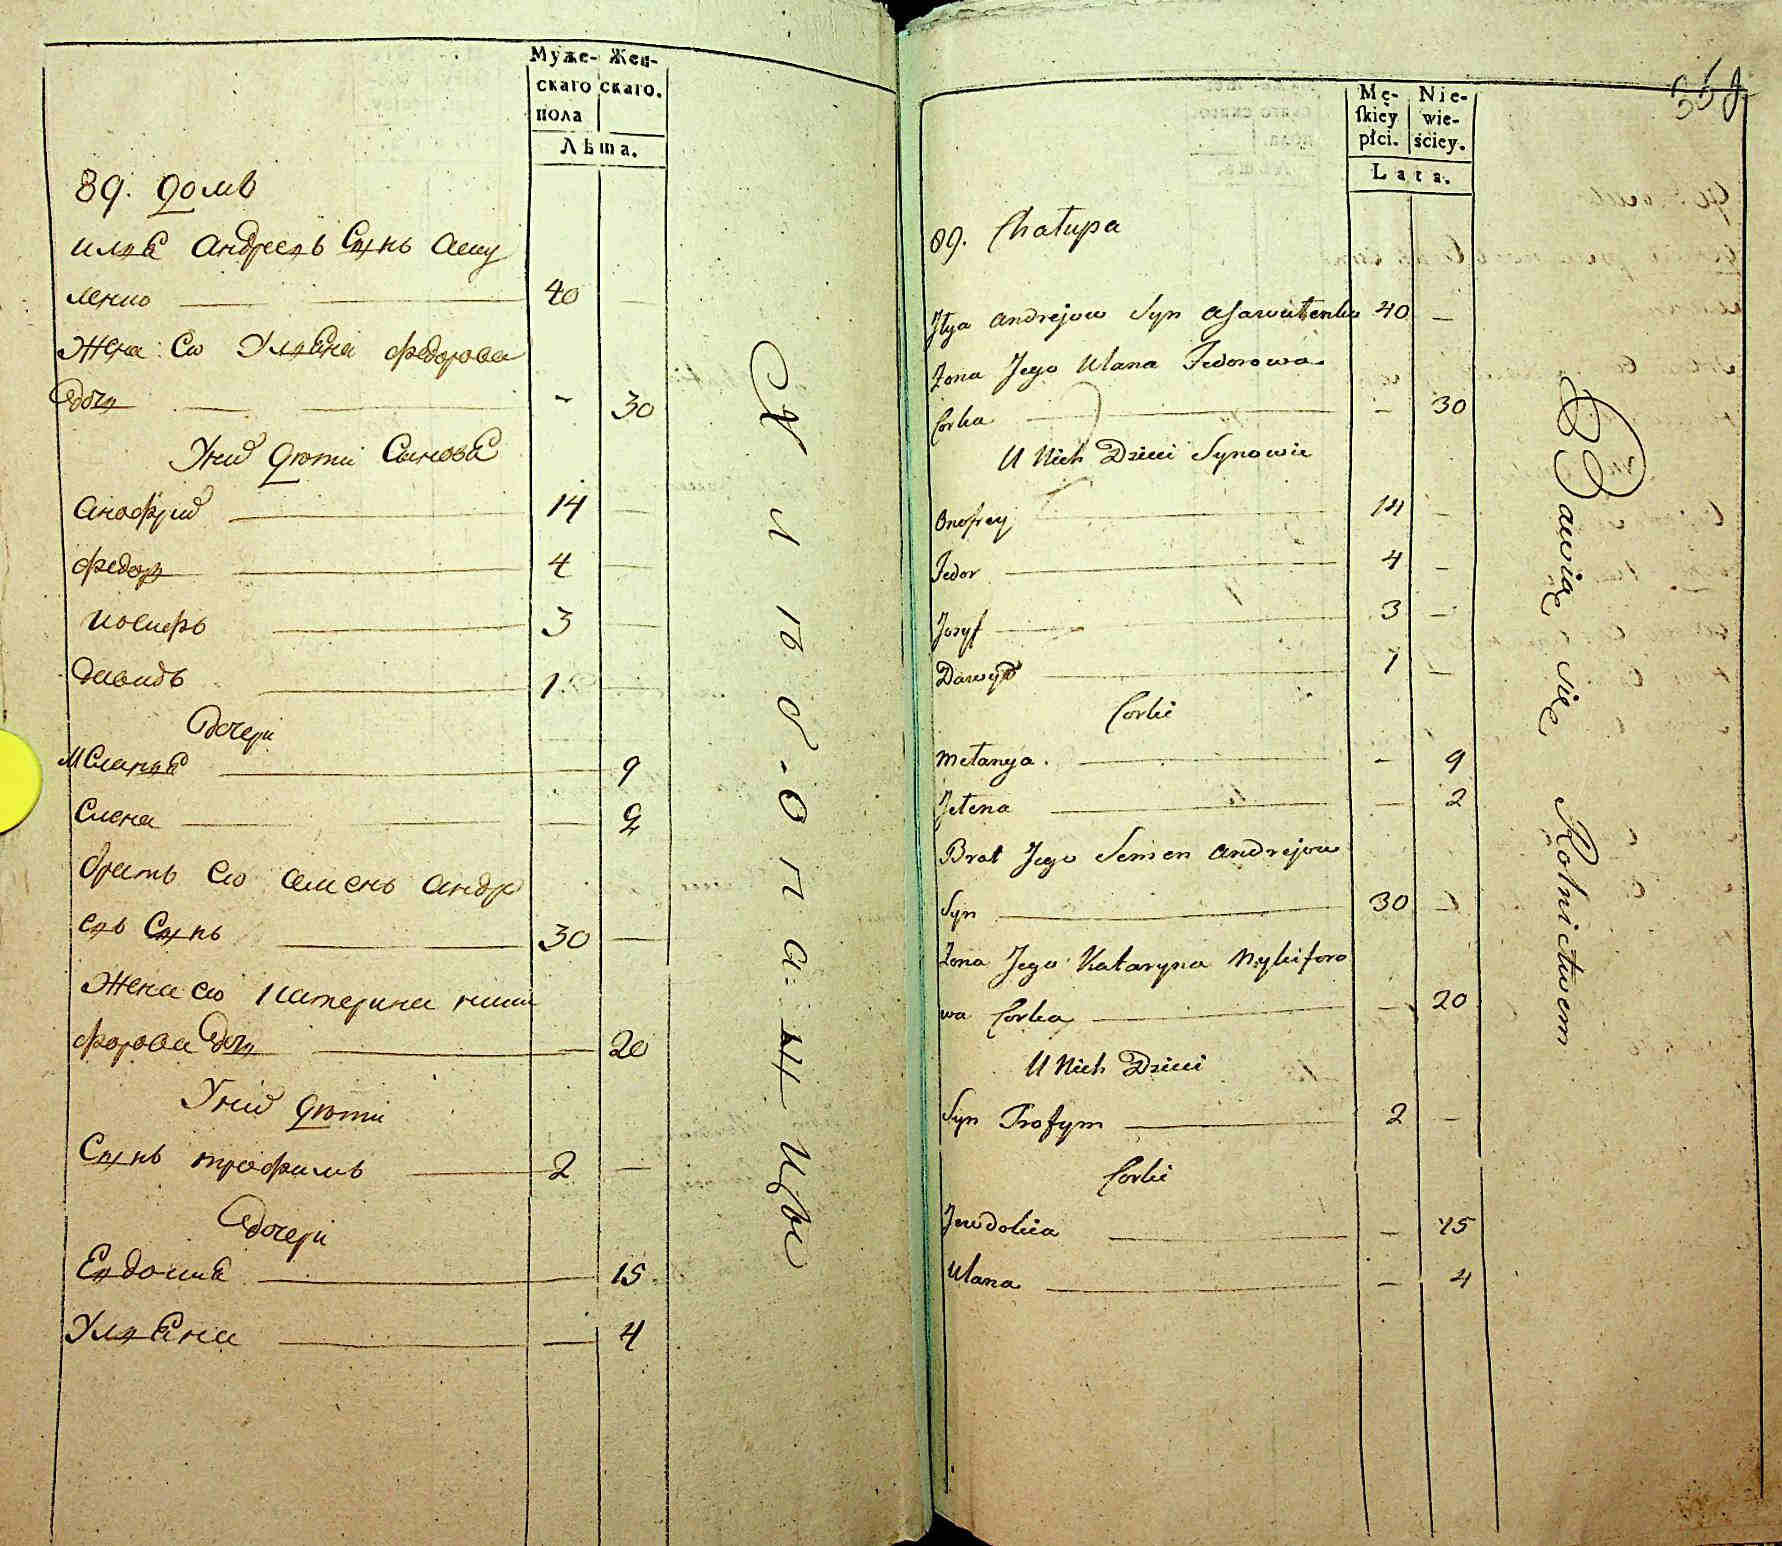 Муже- Жен-
скаго скаго.
пола
Лѣта.
89. домъ
илья андреевъ Сынъ
ленко 40
Жена Ево Ульяна федорова
дочь - 30
У них дѣти Сыновья
анофрий 14
федор 4
иосифъ 3
давидъ 1
дочери
Меланья 9
Елена 2
братъ Ево семенъ андре
евъ Сынъ 30
Жена ево катерина ники
форова дочь 20
У них дѣти
Сынъ трофимъ 2
дочери
Евдокия 15
Ульяна 4
Męskiey płci. Niewieściey.
Lata.
89. Chałupa
Jlya andrejow Syn 40
Zona Jego Ulana Fedorowa
Corka - 30
U Nich Dzieci Synowie
Onofrey 14
Fedor 4
Jozyf 3
Dawyd 1
Corki
Mełanya - 9
Jełena 2
Brat Jego Semen andrejow
Syn 30
Zona Jego Kataryna Nykiforo
wa Corka 20
U Nich Dzieci
Syn Trofym 2
Corki
Jewdokia 15
Ulana 4
Bawią się Rolnictwem